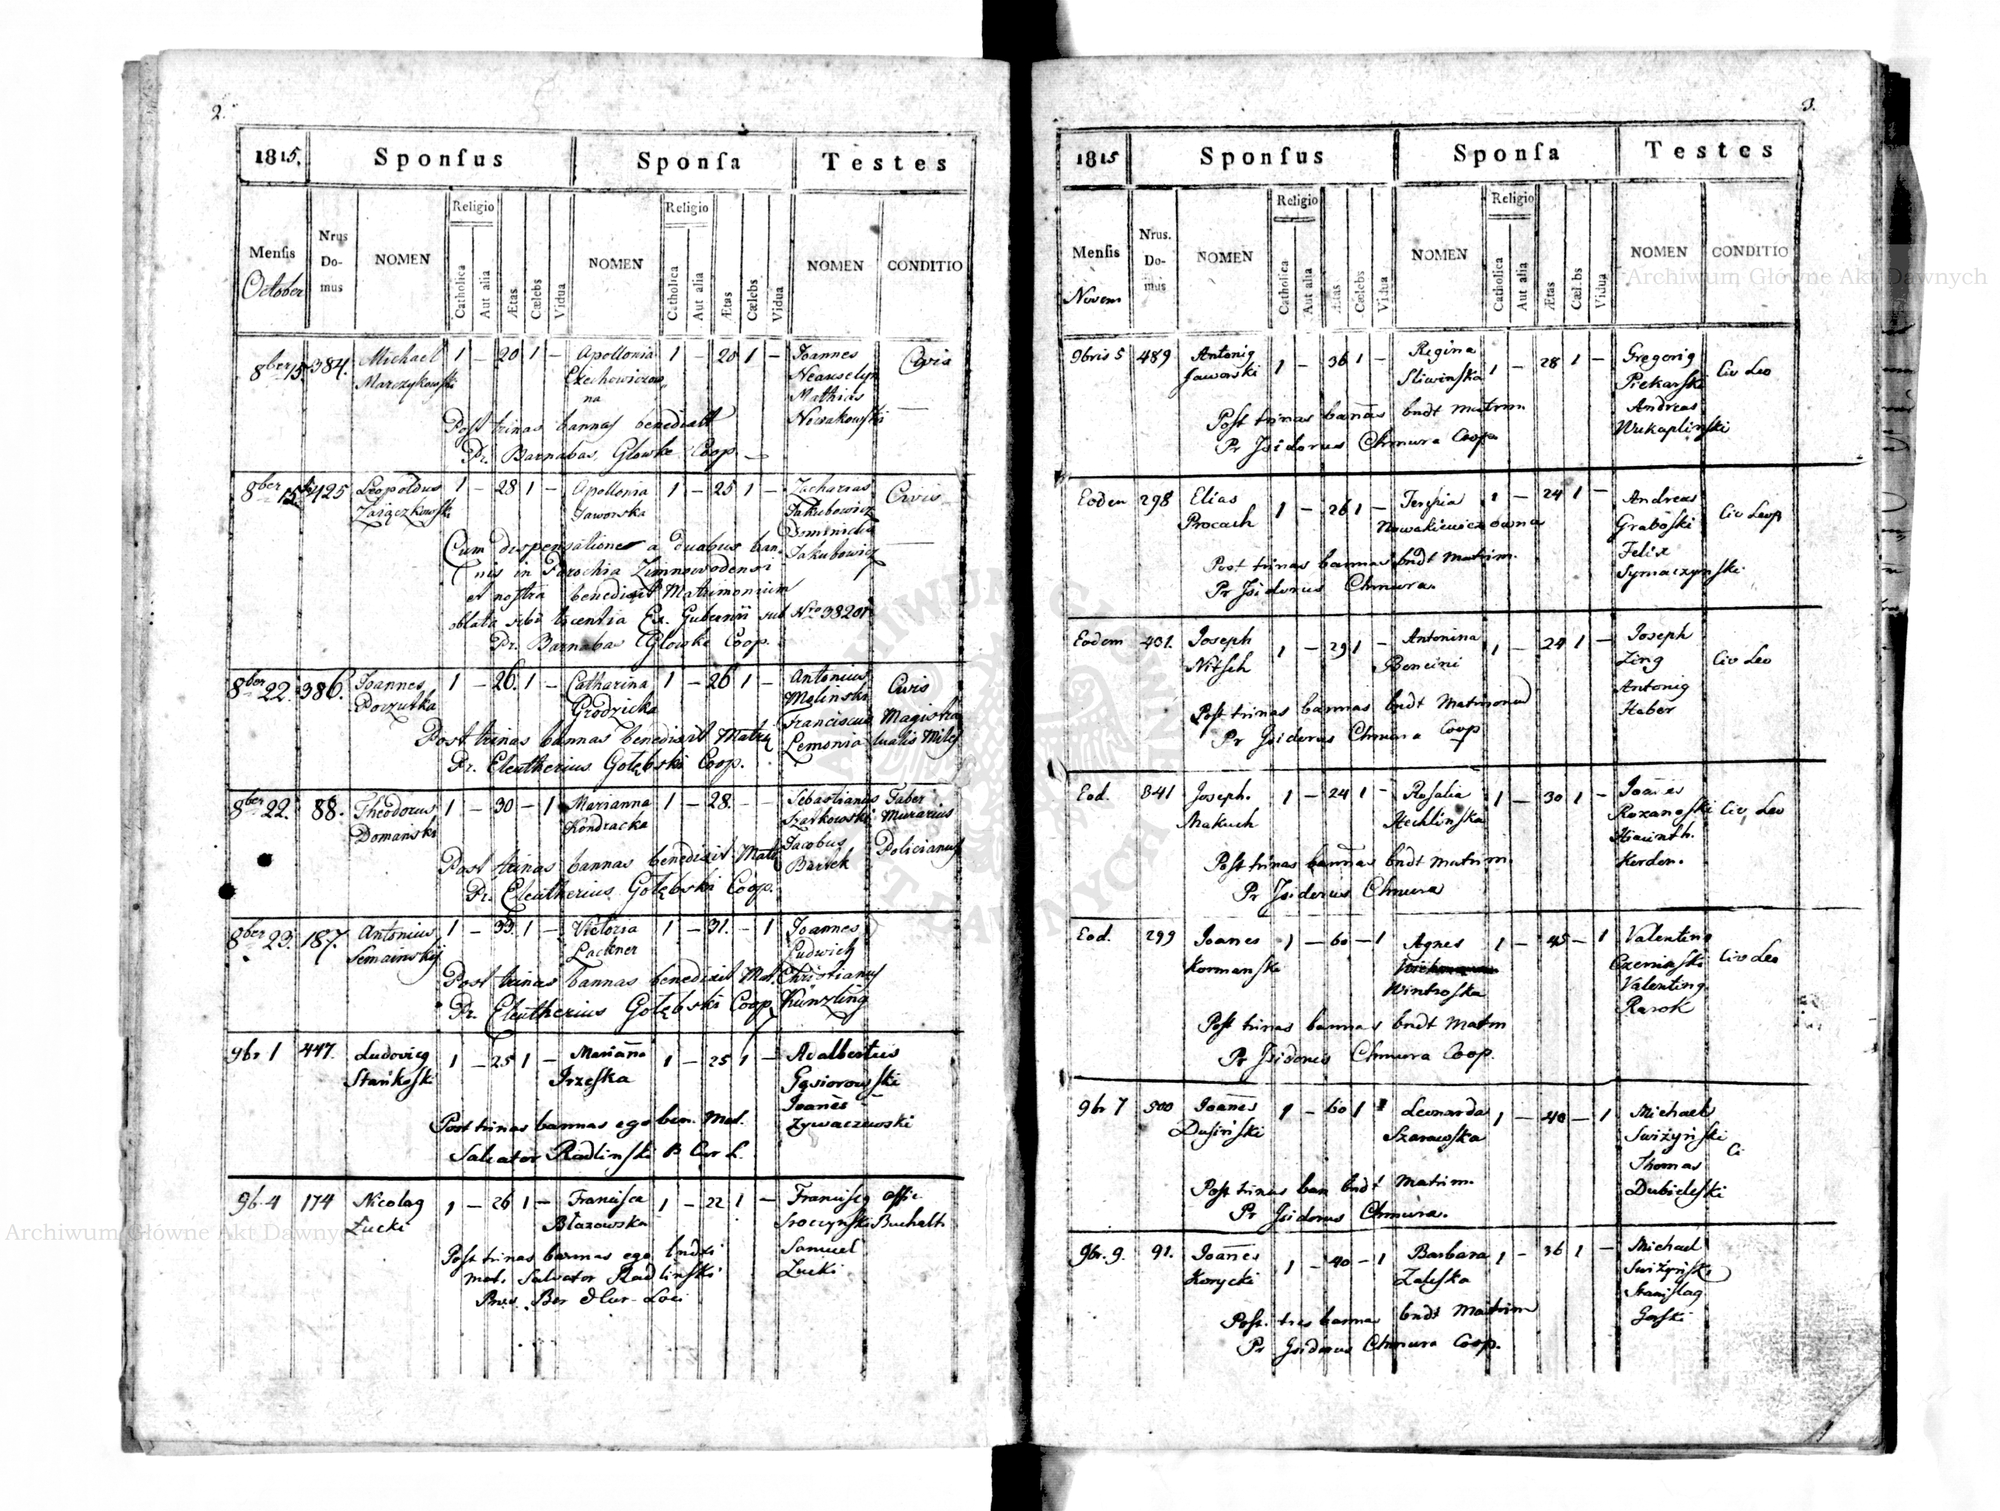 2.
1815. Sponſus Sponſa Testes
Menſis October Nrus Domus NOMEN Religio Catholica Aut alia Ætas Cælebs Vidua NOMEN Religio Catholica Aut alia Ætas Cælebs Vidua NOMEN CONDITIO
8ber 15. 384. Michael 1 – 20 1 – Apollonia 1 – 20 1 – Joannes Civis
Marczykowſki
Mathias
Nowakowſki
Post trinas bannas
Pr. Barnabas Glowke Coop
8ber 15 425 Leopoldus 1 – 28 1 – Apollonia 1 – 25 1 – Zacharias Civis
Jaworska Jakubowicz
Jakubowicz
Cum dispensatione a duabus ban-
nis in Parochia Zimnowodensi
et nostra benedixit Matrimonium
oblata sibi licentia Ex. Gubernii sub Nro 38201
Pr. Barnabas Glowke Coop.
8ber 22. 386. Joannes 1 – 26. 1 – Catharina 1 – 26 1 – Antonius Civis
Grodzicka Malinski
Franciscus Magistra
Lemonia tualis Miles
Post trinas bannas benedixit Matri
Pr. Eleutherius Gołębski Coop.
8ber 22. 88. Theodorus 1 – 30 – 1 Marianna 1 – 28. – – Sebastianus Faber
Domański Kondracka Szarkowski Murarius
Jacobus Policianus
Bartek
Post trinas bannas benedixit Matr
Pr. Eleutherius Gołębski Coop.
8ber 23. 187. Antonius 1 – 33 1 – Victoria 1 – 31. – 1 Joannes
Lackner Ludwich
Post trinas bannas benedixit Mat. Christianus
Pr. Eleutherius Gołębski Coop. Künzling
9br 1 447. Ludovicg 1 – 25 1 – Mariana 1 – 25 1 – Adalbertus
Stańkoſki Gąsiorowſki
Joanes
Post trinas bannas ego ben. Mat. Zywaczewski
Salvator Radlinſki B Cur L.
9b. 4 174 Nicolag 1 – 26 1 – Franciſca 1 – 22 1 – Franciſcg Offic
Łucki Błazowska Sroczyński Buchalt
Post trinas bannas ego bndxi Samuel
mat. Salvator Radlinſki Łucki
Ber & Cur Loci
3.
1815 Sponſus Sponſa Testes
Menſis Novem Nrus. Domus NOMEN Religio Catholica Aut alia Ætas Cælebs Vidua NOMEN Religio Catholica Aut alia Ætas Cælebs Vidua NOMEN CONDITIO
9bris 5 489 Antonig 1 – 36 1 – Regina 1 – 28 1 – Gregorig Civ Leo
Jaworski Sliwinſka Piekarſki
Andreas
Post trinas banas bndt matrim.
Pr Jsidorus Chmura Coop
Eodem 298 Elias 1 – 26 1 – Tereſia 1 – 24 1 – Andreas Civ Leop
Procach Graboſki
Felix
Post trinas bannas bndt Matrim.
Pr Jsidorus Chmura.
Eodem 401. Joseph 1 – 29 1 – Antonina 1 – 24 1 – Joseph Civ Leo
Nitſch Bencini Zing
Antonig
Haber
Post trinas bannas bndt Matrimon
Pr Jsidorus Chmura Coop
Eod. 341 Joseph. 1 – 24 1 – Roſalia 1 – 30 1 – Joanes Civ Leo
Makuch Hechlinſka
Hiacinth.
Kerden.
Post trinas bannas bndt matrim.
Pr Jsidorus Chmura
Eod. 299 Joanes 1 – 60 – 1 Agnes 1 – 45 – 1 Valenting Civ Leo
Kormanſki
Wintroſka Valenting
Rarok
Post trinas bannas bndt Matrm
Pr Jsidorus Chmura Coop.
9br 7 500 Joanes 1 – 60 1 Leonarda 1 – 40 – 1 Michael Ci
Duſińſki Szarawſka Swiżyńſki
Thomas
Dubieleſki
Post trinas ban bndt Matrim.
Pr Jsidorus Chmura.
9br. 9. 91. Joanes 1 – 40 – 1 Barbara 1 – 36 1 – Michael
Korycki Zaleſka Swiżyńſki
Staniſlag
Gorſki
Post. tres bannas bndt Matrim
Pr Jsidorus Chmura Coop.
Archiwum Główne Akt Dawnych
Archiwum Główne Akt Dawnych